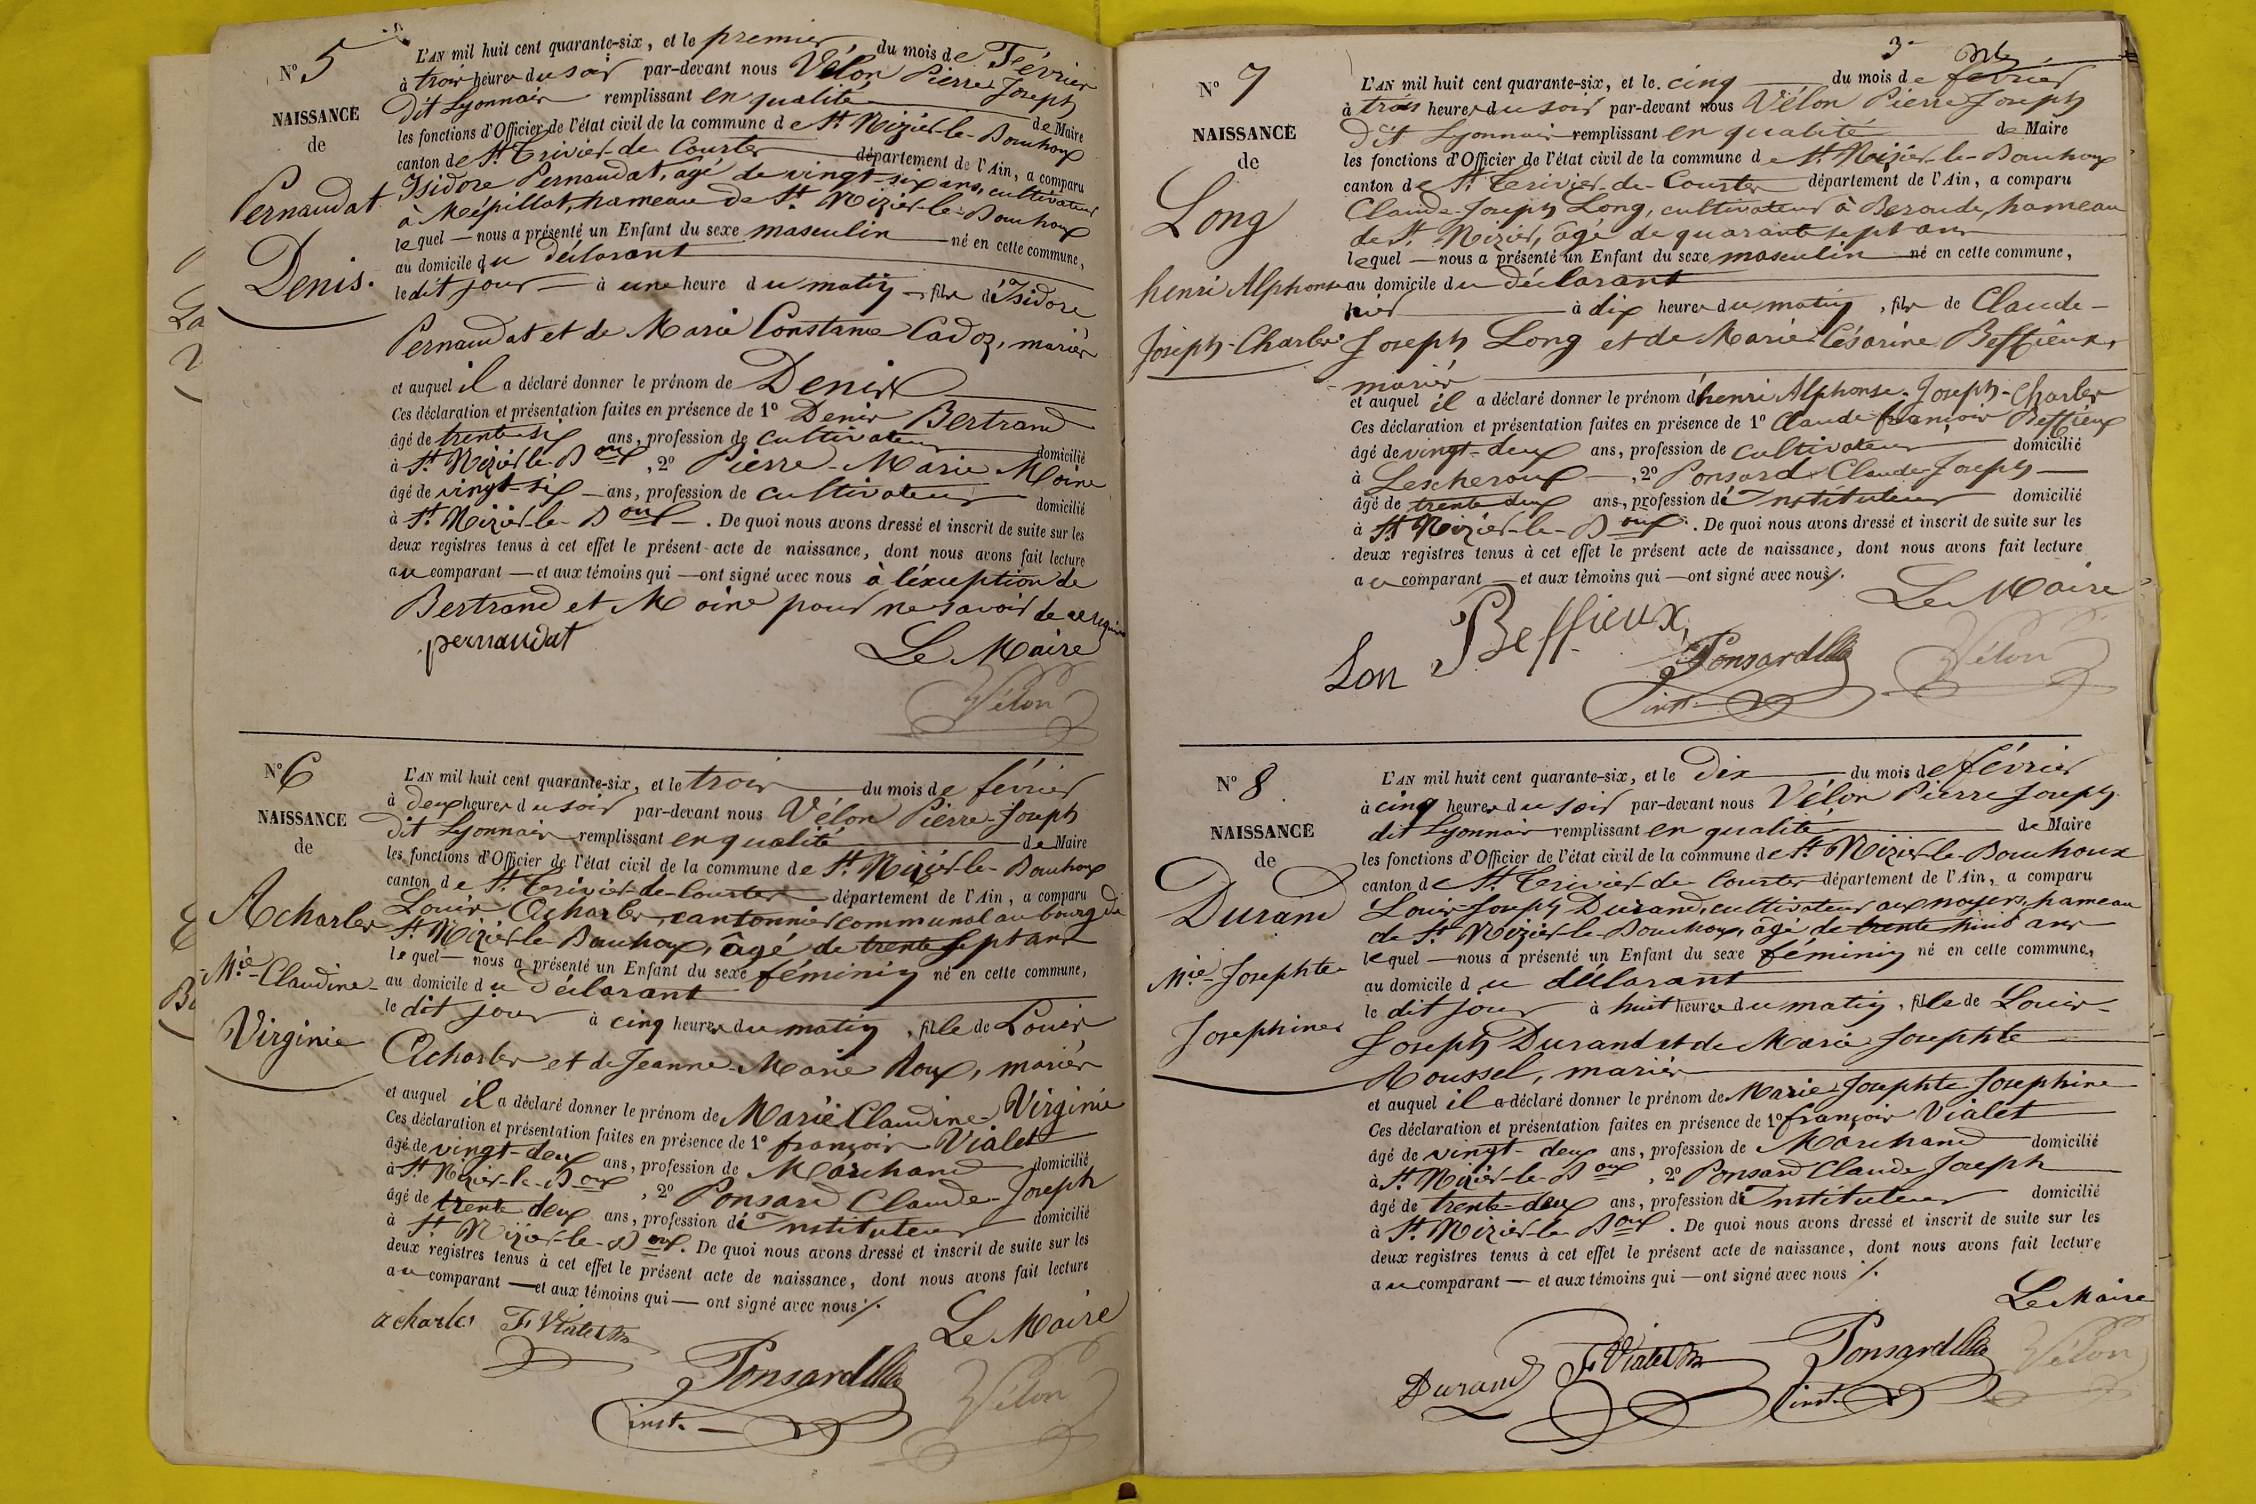 N° 5
NAISSANCE
de
Pernaudat
Denis.
L'AN mil huit cent quarante-six, et le premier du mois de Février
à trois heures du soir par-devant nous Vélon Pierre Joseph
dit Lyonnais remplissant en qualité de Maire
les fonctions d'Officier de l'état civil de la commune de St Nizier-le-Bouchoux
canton de St Trivier-de-Courtes département de l'Ain, a comparu
Isidore Pernaudat, âgé de vingt-six ans, cultivateur
à Mépillat, hameau de St Nizier-le-Bouchoux
lequel — nous a présenté un Enfant du sexe masculin né en cette commune,
au domicile du déclarant
le dit jour à une heure du matin, fils d'Isidore
Pernaudat et de Marie Constance Cadoz, mariés
et auquel il a déclaré donner le prénom de Denis
Ces déclaration et présentation faites en présence de 1° Denis Bertrand
âgé de trente-six ans, profession de cultivateur domicilié
à St Nizier-le-Boux, 2° Pierre-Marie Moine
âgé de vingt-six ans, profession de cultivateur domicilié
à St Nizier-le-Boux. De quoi nous avons dressé et inscrit de suite sur les
deux registres tenus à cet effet le présent acte de naissance, dont nous avons fait lecture
au comparant — et aux témoins qui — ont signé avec nous à l'éxception de
Bertrand et Moine pour ne savoir de ce requis
pernaudat
Le Maire
Vélon
N° 6
NAISSANCE
de
Acharles
Mie-Claudine-
Virginie
L'AN mil huit cent quarante-six, et le trois du mois de février
à deux heures du soir par-devant nous Vélon Pierre-Joseph
dit Lyonnais remplissant en qualité de Maire
les fonctions d'Officier de l'état civil de la commune de St Nizier-le-Bouchoux
canton de St Trivier-de-Courtes département de l'Ain, a comparu
Louis Acharles, cantonnier communal au bourg de
St Nizier-le Bouchoux, âgé de trente sept ans
lequel — nous a présenté un Enfant du sexe féminin né en cette commune,
au domicile du déclarant
le dit jour à cinq heures du matin, fille de Louis
Acharles et de Jeanne-Marie Roux, mariés
et auquel il a déclaré donner le prénom de Marie Claudine-Virginie
Ces déclaration et présentation faites en présence de 1° françois Vialet
âgé de vingt-deux ans, profession de Marchand domicilié
à St Nizier-le-Boux, 2° Ponsard Claude-Joseph
âgé de trente deux ans, profession d'Instituteur domicilié
à St Nizier-le-Boux. De quoi nous avons dressé et inscrit de suite sur les
deux registres tenus à cet effet le présent acte de naissance, dont nous avons fait lecture
au comparant — et aux témoins qui — ont signé avec nous ./.
acharles F Vialet
Le Maire
Ponsard
inst.
Vélon
3e
N° 7
NAISSANCE
de
Long
henri Alphonse
Joseph-Charles
L'AN mil huit cent quarante-six, et le cinq du mois de février
à trois heures du soir par-devant nous Vélon Pierre Joseph
dit Lyonnais remplissant en qualité de Maire
les fonctions d'Officier de l'état civil de la commune de St Nizier-le-Bouchoux
canton de St Trivier-de-Courtes département de l'Ain, a comparu
Claude-Joseph Long, cultivateur à Beroude, hameau
de St Nizier, âgé de quarante sept ans
lequel — nous a présenté un Enfant du sexe masculin né en cette commune,
au domicile du déclarant
hier à dix heures du matin, fils de Claude-
Joseph Long et de Marie Césarine Beffieux,
mariés
et auquel il a déclaré donner le prénom d'henri Alphonse-Joseph-Charles
Ces déclaration et présentation faites en présence de 1° Claude françois Beffieux
âgé de vingt-deux ans, profession de cultivateur domicilié
à Lescheroux, 2° Ponsard Claude-Joseph
âgé de trente deux ans, profession d'Instituteur domicilié
à St Nizier-le-Boux. De quoi nous avons dressé et inscrit de suite sur les
deux registres tenus à cet effet le présent acte de naissance, dont nous avons fait lecture
au comparant — et aux témoins qui — ont signé avec nous ./.
Le Maire
Lon Beffieux
Ponsard
inst.
Vélon
N° 8
NAISSANCE
de
Durand
Mie-Josephte-
Josephine
L'AN mil huit cent quarante-six, et le Dix du mois de février
à cinq heures du soir par-devant nous Vélon Pierre Joseph
dit Lyonnais remplissant en qualité de Maire
les fonctions d'Officier de l'état civil de la commune de St Nizier-le-Bouchoux
canton de St Trivier-de Courtes département de l'Ain, a comparu
Louis-Joseph Durand, cultivateur aux noyers, hameau
de St Nizier-le-Bouchoux, âgé de trente huit ans
lequel — nous a présenté un Enfant du sexe féminin né en cette commune,
au domicile du déclarant
le dit jour à huit heures du matin, fille de Louis-
Joseph Durand et de Marie Josephte
Roussel, mariés
et auquel il a déclaré donner le prénom de Marie Josephte Josephine
Ces déclaration et présentation faites en présence de 1° françois Vialet
âgé de vingt-deux ans, profession de Marchand domicilié
à St Nizier-le-Boux, 2° Ponsard Claude Joseph
âgé de trente-deux ans, profession d'Instituteur domicilié
à St Nizier-le-Boux. De quoi nous avons dressé et inscrit de suite sur les
deux registres tenus à cet effet le présent acte de naissance, dont nous avons fait lecture
au comparant — et aux témoins qui — ont signé avec nous ./.
Le Maire
Durand F Vialet Ponsard
inst.
Vélon